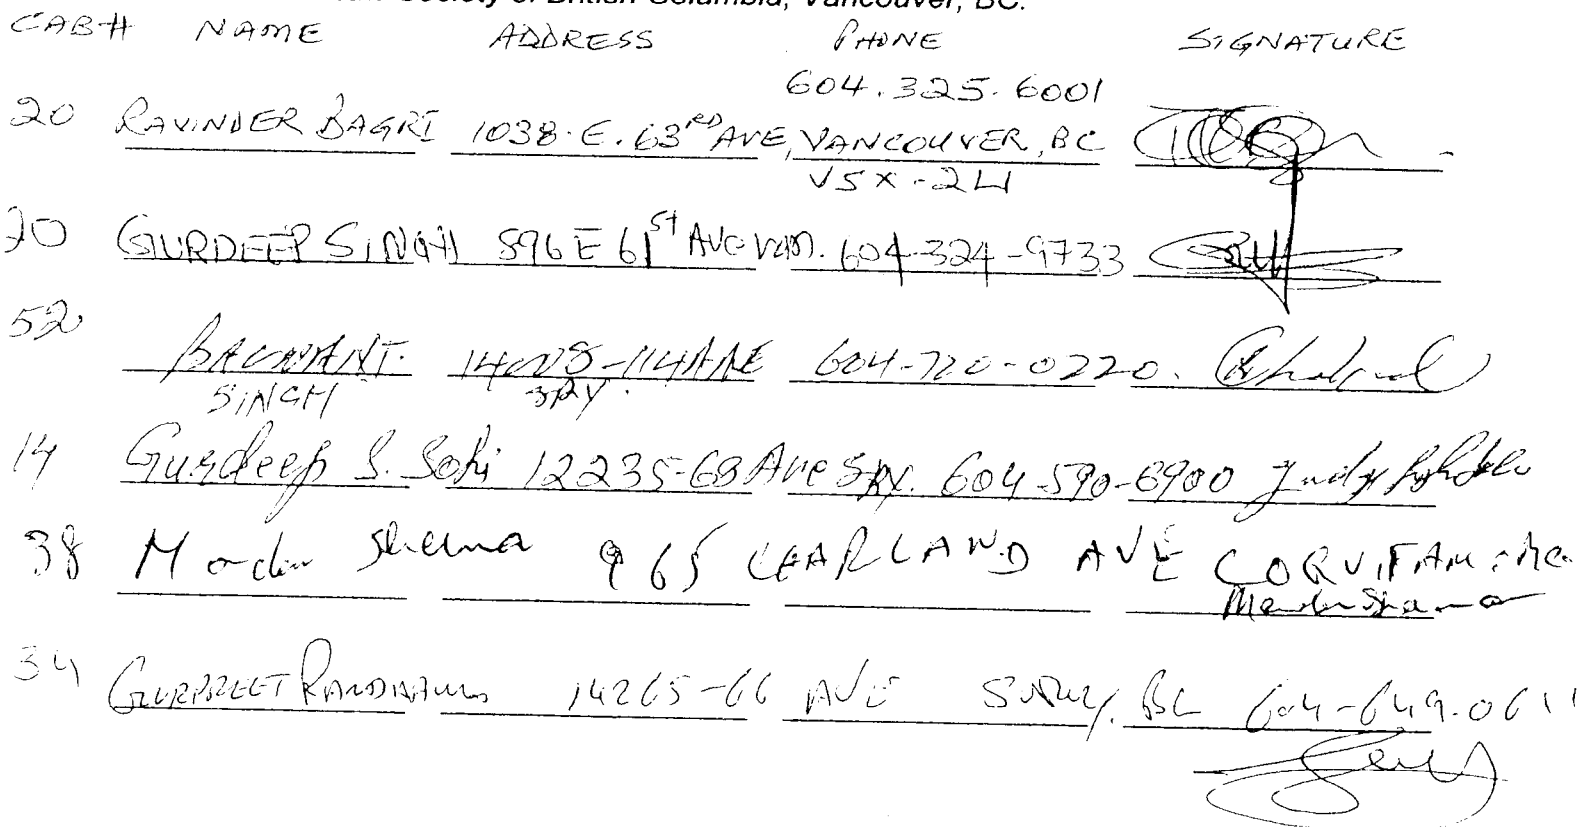 Society of British Columbia, Vancouver, BC.
CAB# NAME ADDRESS PHONE SIGNATURE
604.325.6001
20 RAVINDER BAGRI 1038.E.63RD AVE, VANCOUVER, BC
V5X-2L1
GURDEEP SINGH 596 E 61st AVE VAN. 604-324-9733
52 BALWANT. 604-720-0220.
SINGH SRY.
14 Gurdeep S. Sohi 12235-68 Ave SRY. 604-590-8900
38 Sharma 965 AVE
34 GURPREET RANDHAWA 14265-66 AVE SURREY, BC 604-649-0611